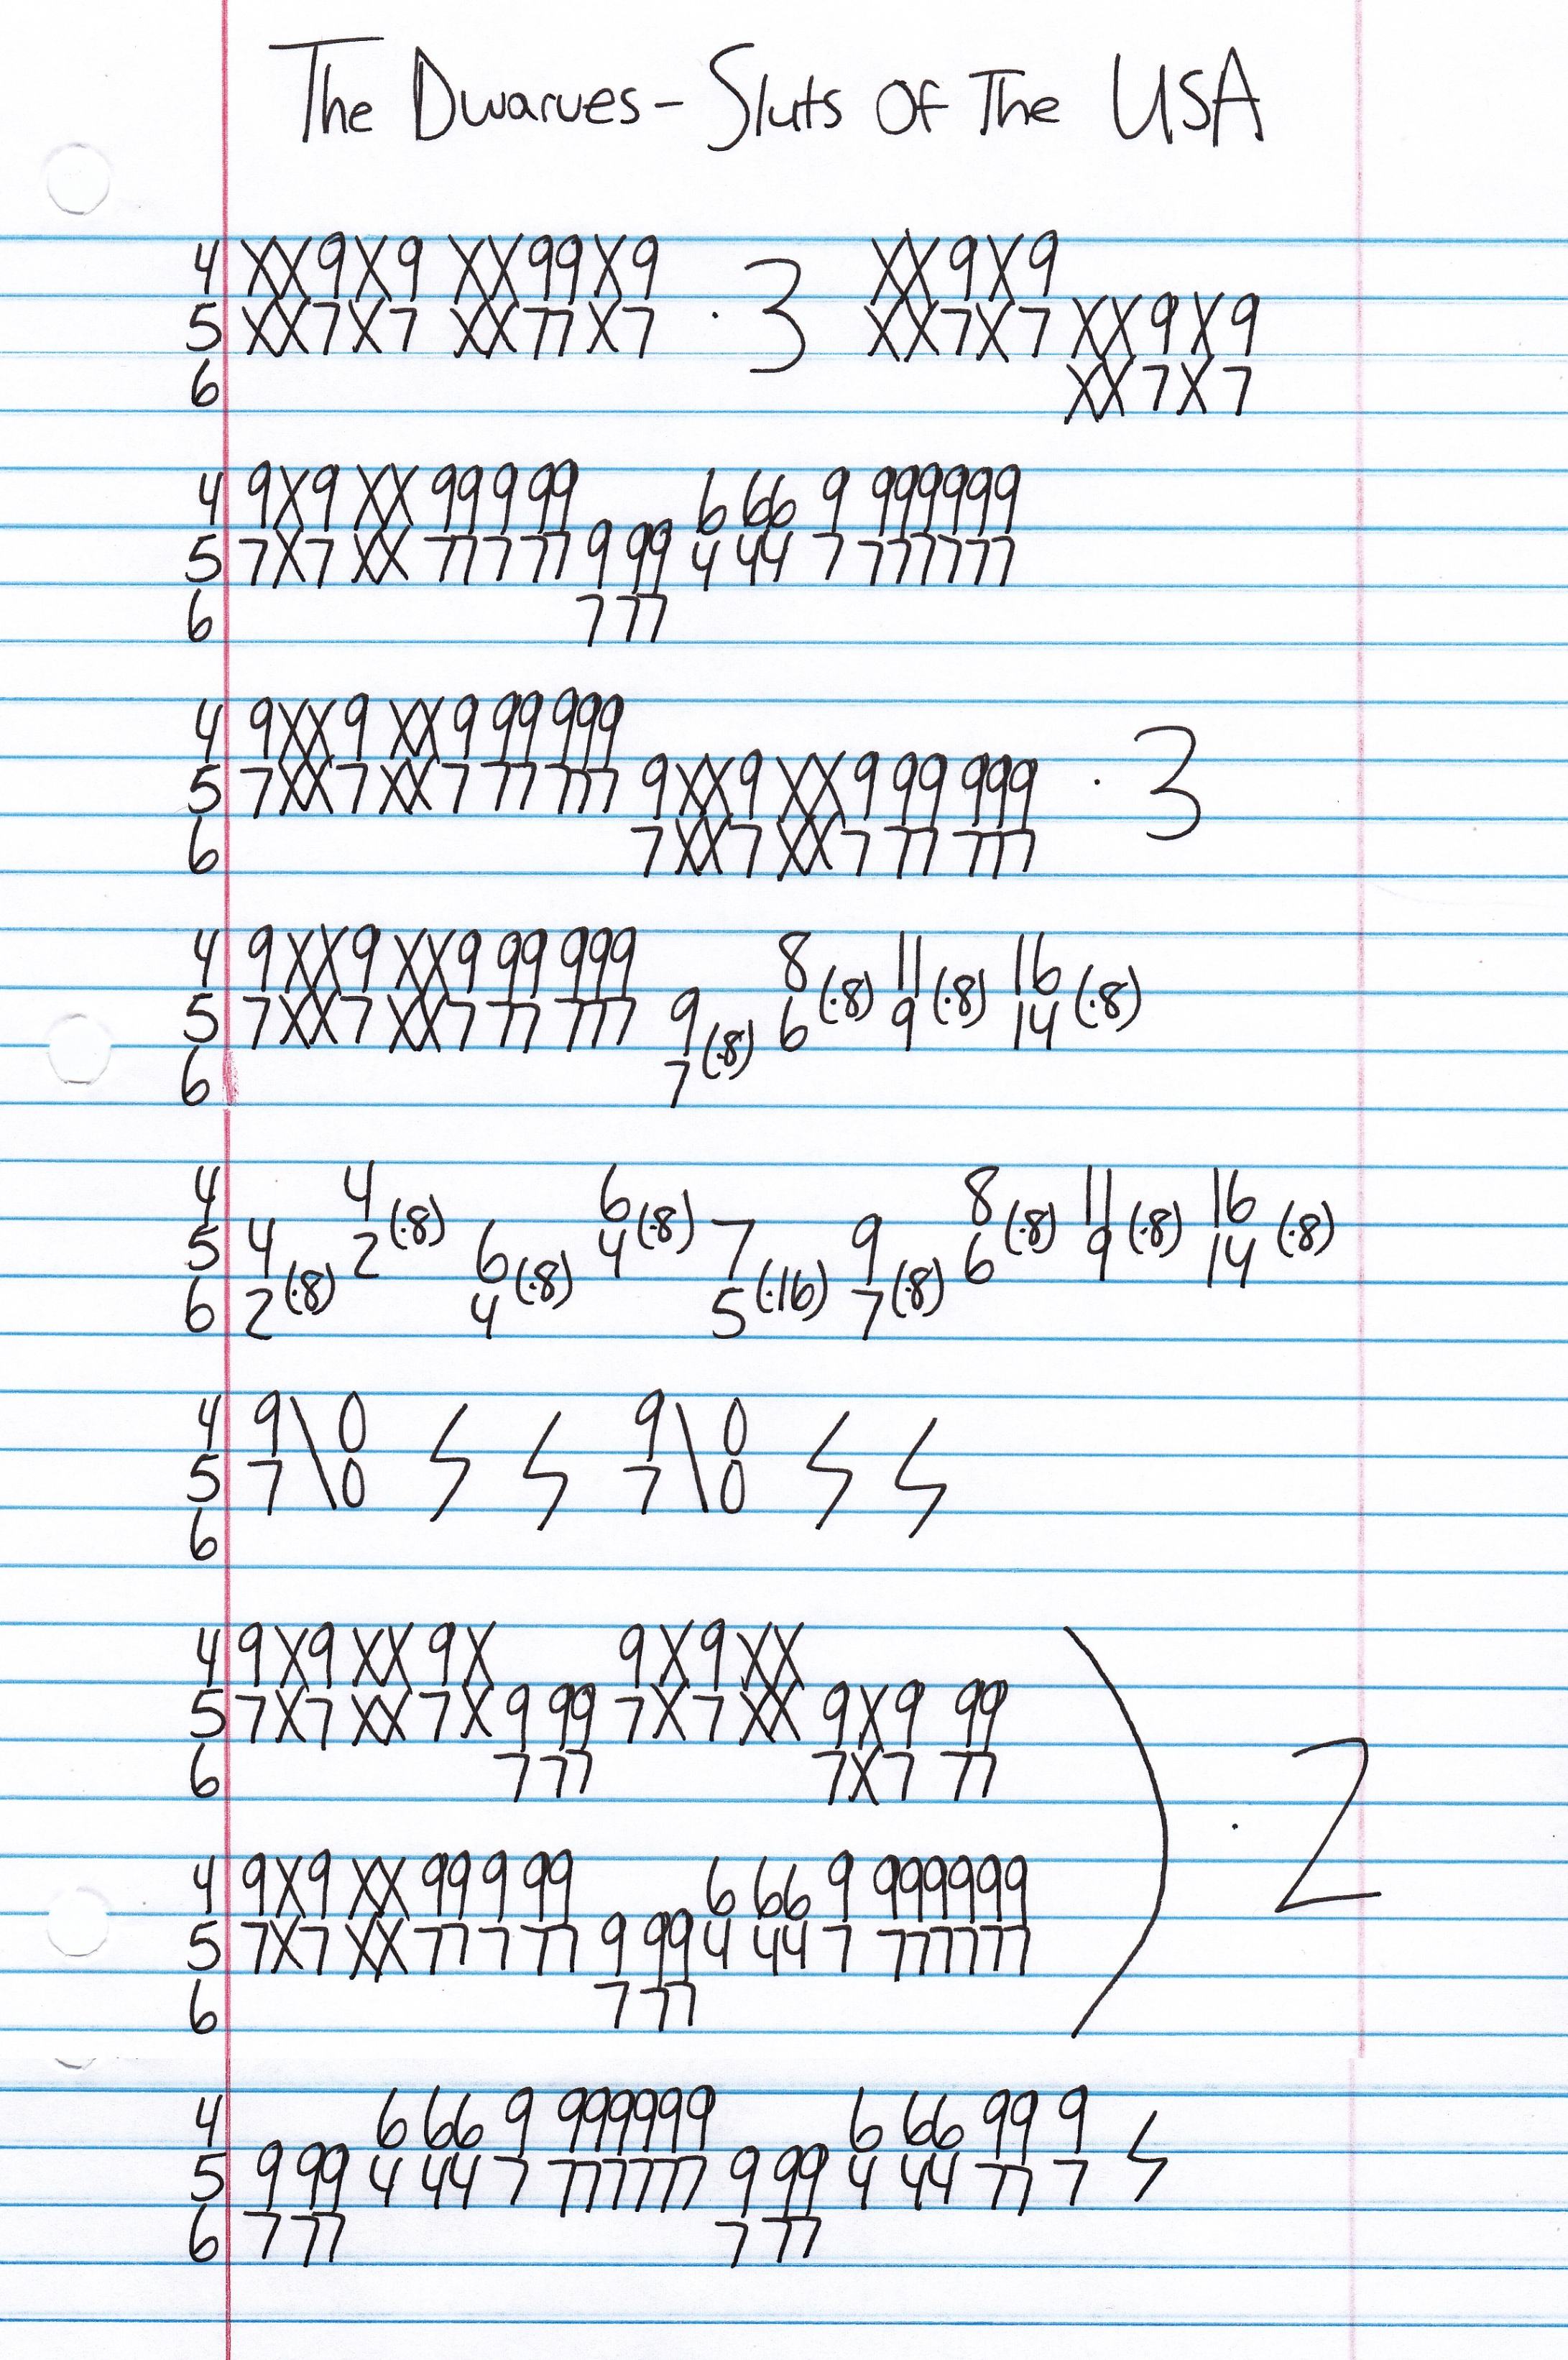 The Dwarves - Sluts Of The USA
4 XX9X9 XX99X9 XX9X9
5 XX7X7 XX77X7 · 3 XX7X7 XX9X9
6 XX7X7
4 9X9 XX 99 9 99 6 66 9 999999
5 7X7 XX 77 7 77 9 99 4 44 7 777777
6 7 77
4 9XX9 XX9 99 999
5 7XX7 XX7 77 777 9XX9 XX9 99 999 · 3
6 7XX7 XX7 77 777
4 9XX9 XX9 99 999 8 (·8) 11 (·8) 16 (·8)
5 7XX7 XX7 77 777 9 (·8) 6 9 14
6 7
4 4 (·8) 6 (·8) 8 (·8) 11 (·8) 16 (·8)
5 4 (·8) 2 6 (·8) 4 7 (·16) 9 (·8) 6 9 14
6 2 4 5 7
4 9\0 9\0
5 7\0 7\0
6
4 9X9 XX 9X 9X9 XX
5 7X7 XX 7X 9 99 7X7 XX 9X9 99
6 7 77 7X7 77
) · 2
4 9X9 XX 99 9 99 6 66 9 999999
5 7X7 XX 77 7 77 9 99 4 44 7 777777
6 7 77
4 6 66 9 999999 6 66 99 9
5 9 99 4 44 7 777777 9 99 4 44 77 7
6 7 77 7 77